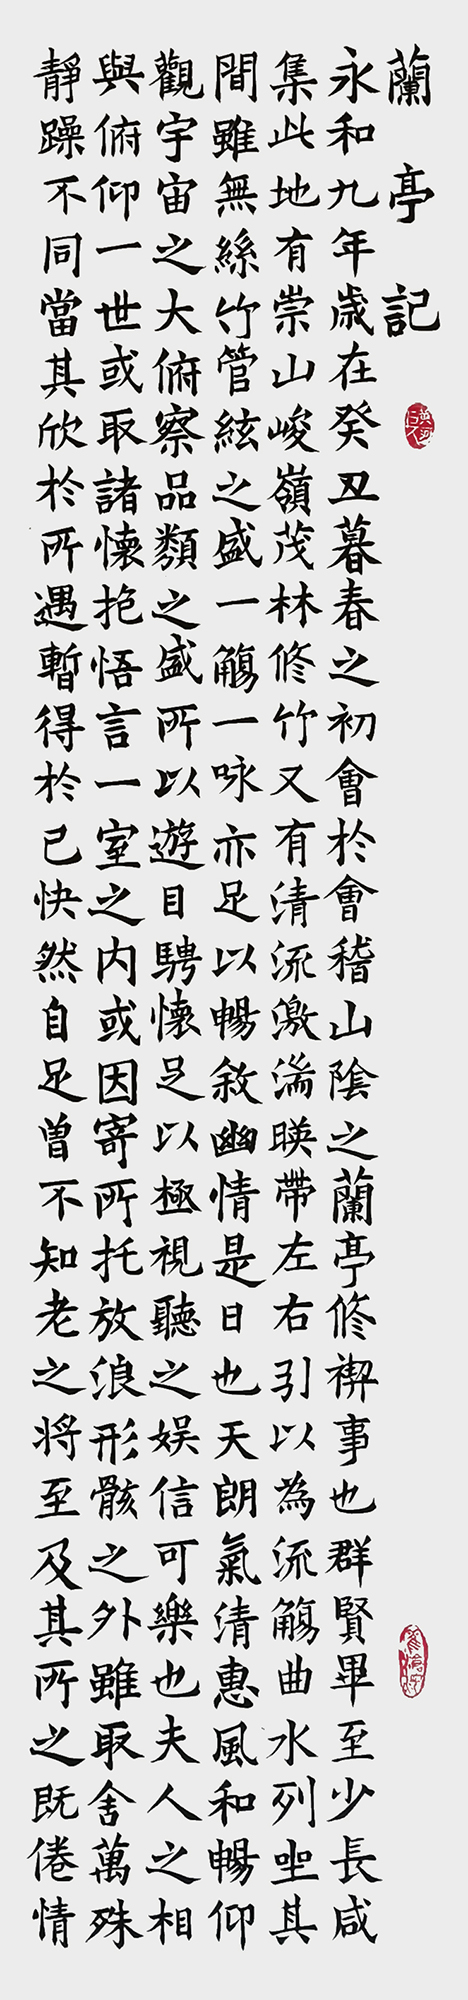 蘭亭記
永和九年歳在癸丑暮春之初會於會稽山陰之蘭亭修禊事也群賢畢至少長咸
集此地有崇山峻嶺茂林修竹又有清流激湍暎帶左右引以為流觴曲水列坐其
間雖無絲竹管絃之盛一觴一咏亦足以暢敘幽情是日也天朗氣清惠風和暢仰
觀宇宙之大俯察品類之盛所以遊目騁懷足以極視聽之娱信可樂也夫人之相
與俯仰一世或取諸懷抱悟言一室之内或因寄所托放浪形骸之外雖取舍萬殊
靜躁不同當其欣於所遇暫得於已快然自足曾不知老之将至及其所之既倦情